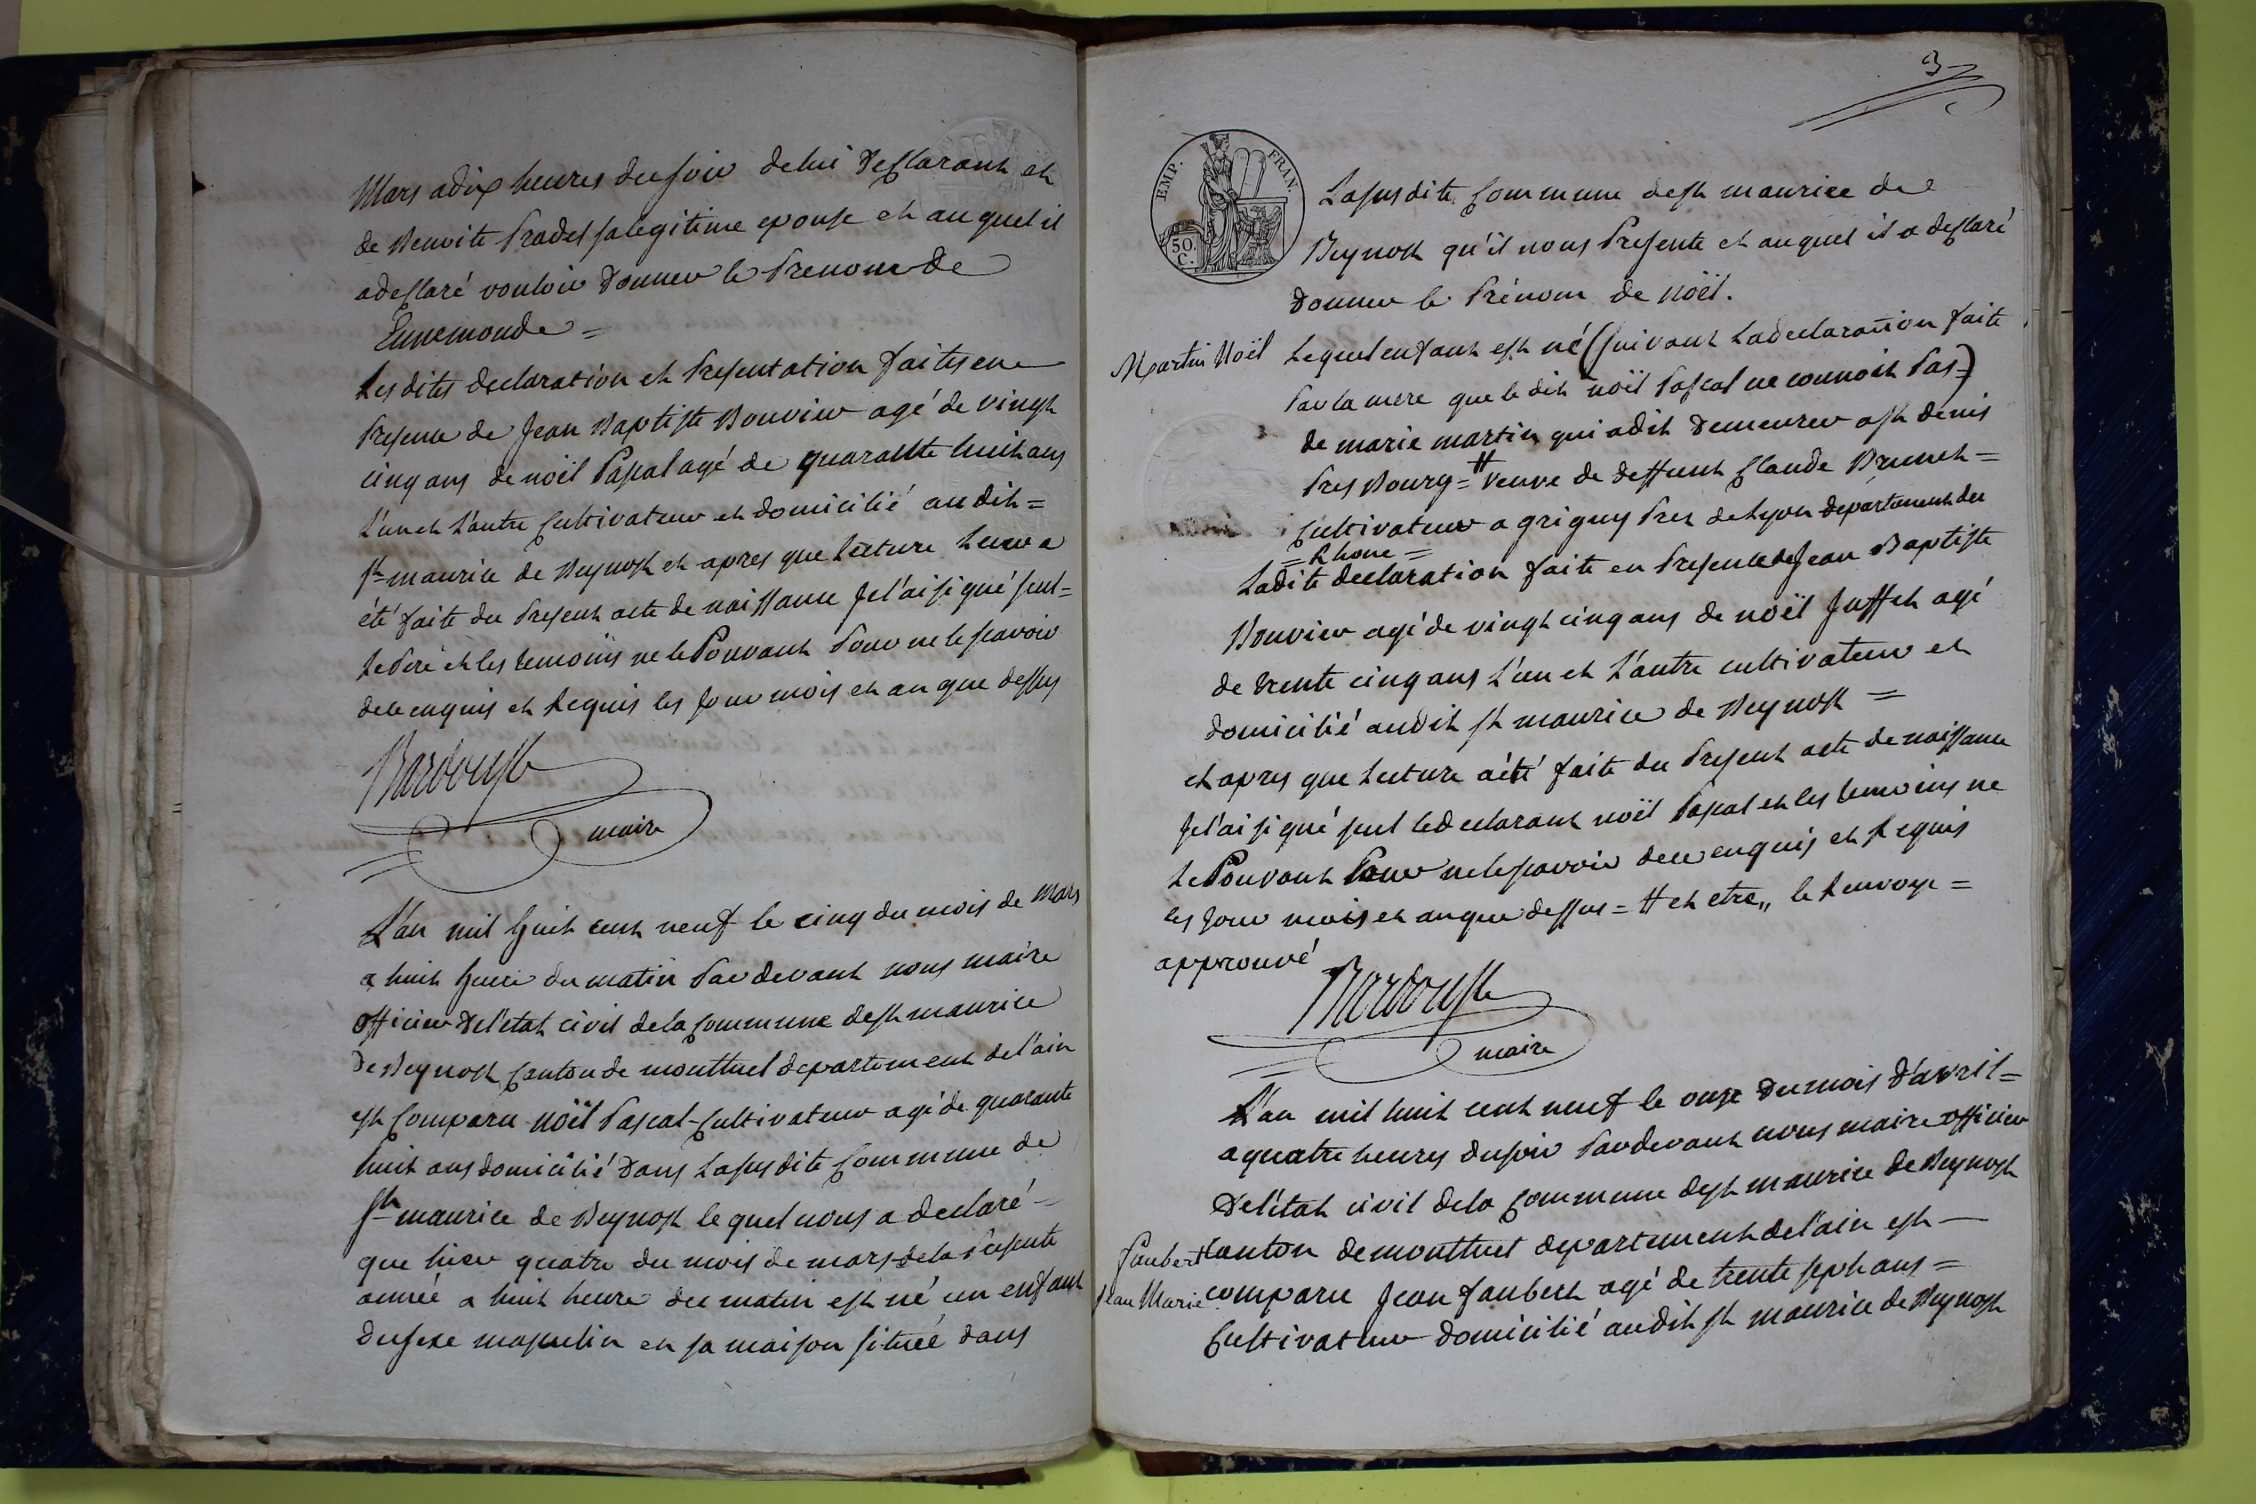 Mars a dix heures du soir de lui Declarant et
de Benoite Prades sa legitime epouse et au quel il
a declaré vouloir Donner le Prenom de
Ennemonde =
Les dites declaration et Presentation faites en
Presence de Jean Baptiste Bouvier agé de vingt
cinq ans de noël Pascal agé de quarante huit ans
L'un et L'autre Cultivateur et domicilié au dit =
St maurice de Beynost et apres que Lecture Leur a
été faite du Present acte de naissance Je l'ai signé seul =
Le Peré et les temoins ne le Pouvant Pour ne le scavoir
de ce enquis et Requis les Jour mois et an que dessus
Bardousse
maire
L'an mil huit cent neuf le cinq du mois de Mars
a huit heure du matin Par devant nous maire
officier De l'etat civil de la Commune de st maurice
De Beynost Canton de montluel departement de l'ain
est Comparu noël Pascal - Cultivateur agé de quarante
huit ans domicilié Dans La susdite Commune de
St maurice de Beynost le quel nous a declaré -
que hier quatre du mois de mars de la Presente
année a huit heure du matin est né un enfant
du sexe masculin en sa maison située dans
3
EMP. FRAN.
50.
C.
La susdite Commune de st maurice de
Beynost qu'il nous Presente et auquel il a declaré
donner le Prénom de Noël.
Martin Noël
Lequel enfant est né (suivant La declaration faite
Par la mere que le dit noël Pascal ne connoit Pas =)
de marie martin qui a dit Demeurer a st denis
Pres Bourg = # veuve de deffunt Claude Brunet =
Cultivateur a grigny Prez de Lyon departement du
= Rhone =
Ladite declaration faite en Presence de Jean Baptiste
Bouvier agé de vingt cinq ans de noël Juffet agé
de trente cinq ans L'un et L'autre cultivateur et
domicilié audit st maurice de Beynost =
et apres que Lecture a été faite du Present acte de naissance
Je l'ai signé seul le declarant noël Pascal et les temoins ne
Le Pouvant Pour ne le scavoir de ce enquis et Requis
les Jour mois et an que dessus = # et etre ,, le Renvoye =
approuvé
Bardousse
maire
L'an mil huit cent neuf le onze du mois D'avril =
a quatre heures du soir Par devant nous maire officier
De l'état civil de la Commune de st maurice de Beynost
Faubert
canton de montluel departement de l'ain est -
Jean Marie
comparu Jean faubert agé de trente sept ans =
Cultivateur domicilié audit st maurice de Beynost